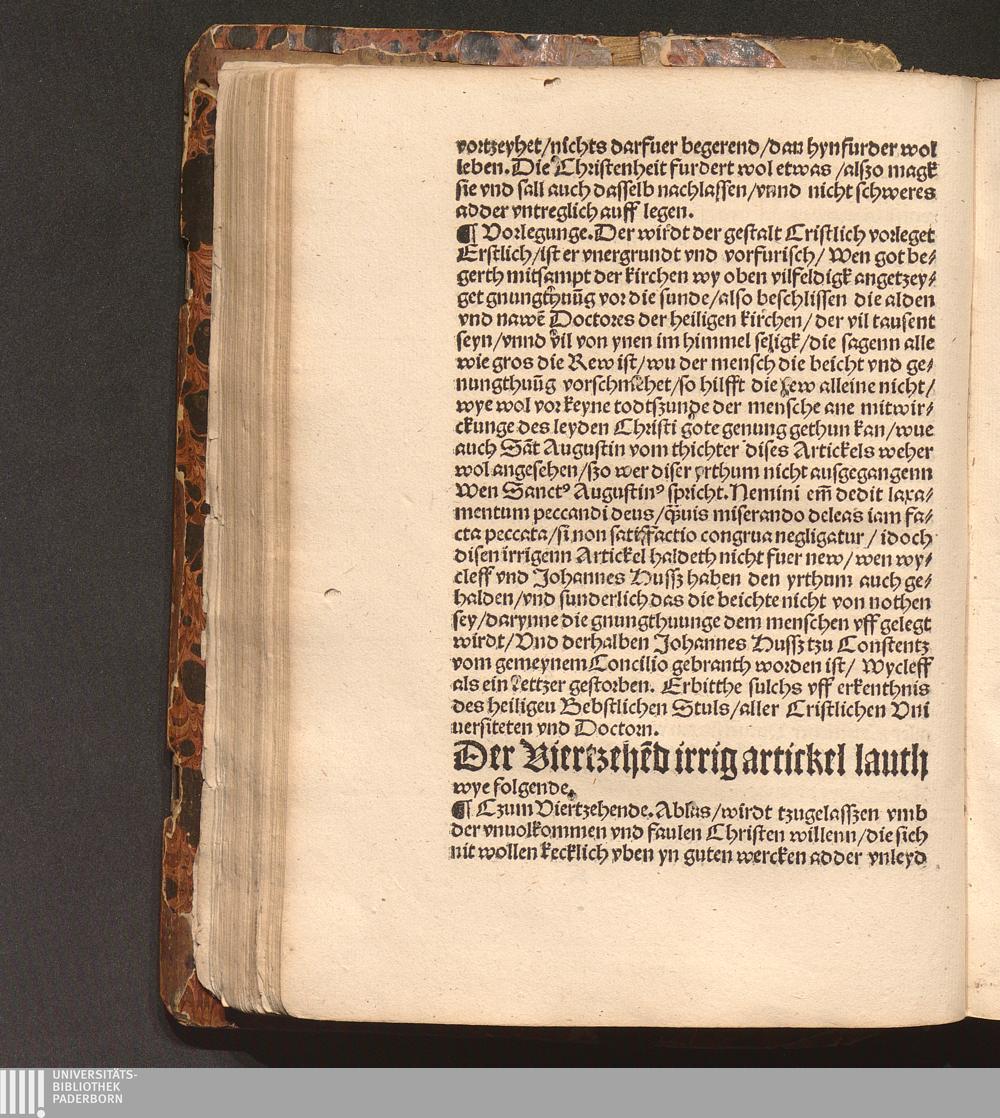 vortzeyhet/nichts darfuer begerend/dan hynfurder wol
leben. Die Christenheit furdert wol etwas /alßzo magk
sie vnd sall auch dasselb nachlassen/vnnd nicht schweres
adder vntreglich auff legen.
¶ Vorlegunge. Der wirdt der gestalt Cristlich vorleget
Erstlich/ist er vnergrundt vnd vorfurisch/ Wen got be⸗
gerth mitsampt der kirchen wy oben vilfeldigk angetzey⸗
get gnungthuūg vor die sunde/also beschlissen die alden
vnd nawē Doctores der heiligen kirchen/ der vil tausent
seyn/vnnd vil von ynen im himmel seligk/die sagenn alle
wie gros die Rew ist/wu der mensch die beicht vnd ge⸗
nungthuūg vorschmehet/so hilfft die rew alleine nicht/
wye wol vor keyne todtszunde der mensche ane mitwir⸗
ckunge des leyden Christi gote genung gethun kan/wue
auch Sāt Augustin vom thichter dises Artickels weher
wol angesehen/szo wer diser yrthum nicht ausgegangenn
Wen Sanctꝰ Augustinꝰ spricht. Nemini em̄ dedit laxa⸗
mentum peccandi deus/q̄uis miserando deleas iam fa⸗
cta peccata/si non satisfactio congrua negligatur / idoch
disen irrigenn Artickel haldeth nicht fuer new/wen wy⸗
cleff vnd Johannes Hussz haben den yrthum auch ge⸗
halden/vnd sunderlich das die beichte nicht von nothen
sey/darynne die gnungthuunge dem menschen vff gelegt
wirdt/Vnd derhalben Johannes Hussz tzu Constentz
vom gemeynem Concilio gebranth worden ist/ Wycleff
als ein kettzer gestorben. Erbitthe sulchs vff erkenthnis
des heiligeu Bebstlichen Stuls/aller Cristlichen Vni
uersiteten vnd Doctorn.
Der Viertzehēd irrig artickel lauth
wye folgende.
¶ Czum Viertzehende. Ablas/wirdt tzugelasszen vmb
der vnuolkommen vnd faulen Christen willenn/die sich
nit wollen kecklich vben yn guten wercken adder vnleyd
UNIVERSITÄTS-
BIBLIOTHEK
PADERBORN